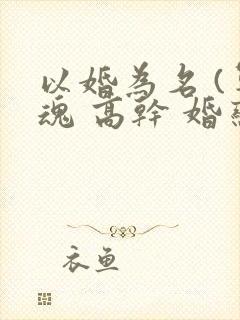 以婚為名(
魂 高幹 婚
衣魚